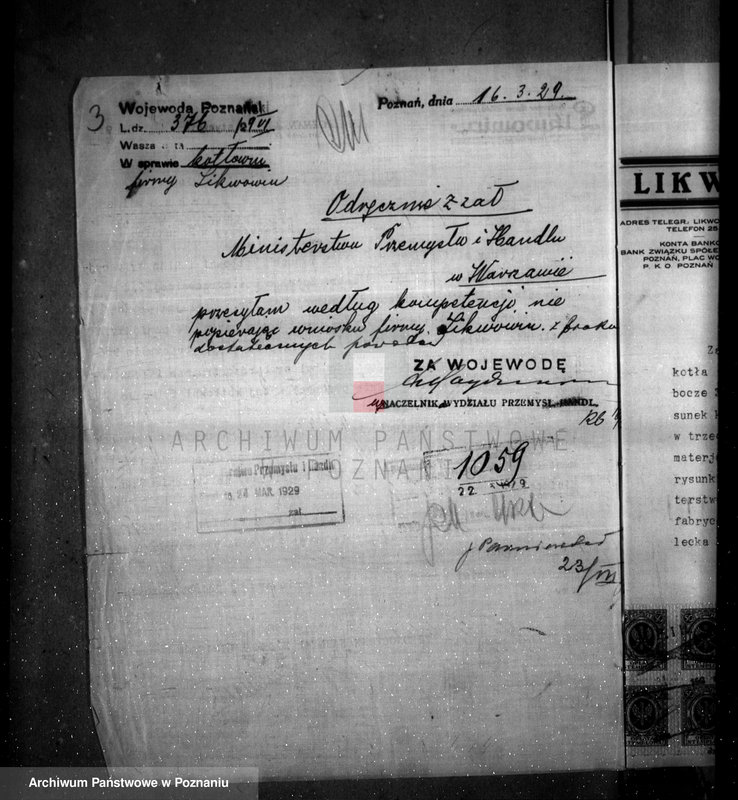 3
Wojewoda Poznański
L. dz. 376 /29 VI
Wasza
W sprawie kotłowni
firmy Likwowin
Poznań, dnia 16.3.29.
Odręcznie z zał
Ministerstwu Przemysłu i Handlu
w Warszawie
przesyłam według kompetencji nie
popierając wniosku firmy Likwowin z braku
dostatecznych
ZA WOJEWODĘ
NACZELNIK WYDZIAŁU PRZEMYSŁ. HANDL.
ARCHIWUM PAŃSTWOWE
W POZNANIU
Przemysłu i Handlu
24 MAR. 1929
zał
1059
22
23/III
LIKW
ADRES TELEGR.: LIKWO
TELEFON 25
KONTA BANKO
BANK ZWIĄZKU SPÓŁE
POZNAŃ, PLAC WO
P. K. O. POZNAŃ
Za
kotła
bocze 3
sunek k
w trzec
materj
rysunki
terstwo
fabryc
lecka
Archiwum Państwowe w Poznaniu